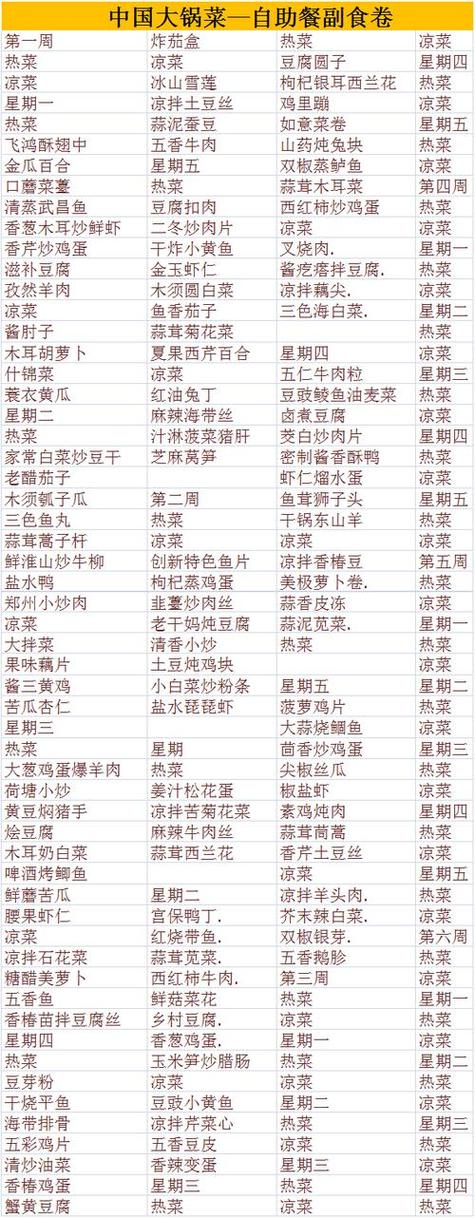 中国大锅菜—自助餐副食卷
第一周
热菜
凉菜
星期一
热菜
飞鸿酥翅中
金瓜百合
口蘑菜薹
清蒸武昌鱼
香葱木耳炒鲜虾
香芹炒鸡蛋
滋补豆腐
孜然羊肉
凉菜
酱肘子
木耳胡萝卜
什锦菜
蓑衣黄瓜
星期二
热菜
家常白菜炒豆干
老醋茄子
木须瓠子瓜
三色鱼丸
蒜茸蒿子杆
鲜淮山炒牛柳
盐水鸭
郑州小炒肉
凉菜
大拌菜
果味藕片
酱三黄鸡
苦瓜杏仁
星期三
热菜
大葱鸡蛋爆羊肉
荷塘小炒
黄豆焖猪手
烩豆腐
木耳奶白菜
啤酒烤鲫鱼
鲜蘑苦瓜
腰果虾仁
凉菜
凉拌石花菜
糖醋美萝卜
五香鱼
香椿苗拌豆腐丝
星期四
热菜
豆芽粉
干烧平鱼
海带排骨
五彩鸡片
清炒油菜
香椿鸡蛋
蟹黄豆腐
炸茄盒
凉菜
冰山雪莲
凉拌土豆丝
蒜泥蚕豆
五香牛肉
星期五
热菜
豆腐扣肉
二冬炒肉片
干炸小黄鱼
金玉虾仁
木须圆白菜
鱼香茄子
蒜茸菊花菜
夏果西芹百合
凉菜
红油兔丁
麻辣海带丝
汁淋菠菜猪肝
芝麻莴笋
第二周
热菜
凉菜
创新特色鱼片
枸杞蒸鸡蛋
韭薹炒肉丝
老干妈炖豆腐
清香小炒
土豆炖鸡块
小白菜炒粉条
盐水琵琶虾
星期
热菜
姜汁松花蛋
凉拌苦菊花菜
麻辣牛肉丝
蒜茸西兰花
星期二
宫保鸭丁.
红烧带鱼.
蒜茸苋菜.
西红柿牛肉.
鲜菇菜花
乡村豆腐.
香葱鸡蛋.
玉米笋炒腊肠
凉菜
豆豉小黄鱼
凉拌芹菜心
五香豆皮
香辣变蛋
星期三
热菜
热菜
豆腐圆子
枸杞银耳西兰花
鸡里蹦
如意菜卷
山药炖兔块
双椒蒸鲈鱼
蒜茸木耳菜
西红柿炒鸡蛋
凉菜
叉烧肉.
酱疙瘩拌豆腐.
凉拌藕尖.
三色海白菜.
星期四
五仁牛肉粒
豆豉鲮鱼油麦菜
卤煮豆腐
茭白炒肉片
密制酱香酥鸭
虾仁熘水蛋
鱼茸狮子头
干锅东山羊
凉菜
凉拌香椿豆
美极萝卜卷.
蒜香皮冻
蒜泥苋菜.
热菜
星期五
菠萝鸡片
大蒜烧鲴鱼
茴香炒鸡蛋
尖椒丝瓜
椒盐虾
素鸡炖肉
蒜茸茼蒿
香芹土豆丝
凉菜
凉拌羊头肉.
芥末辣白菜.
双椒银芽.
五香鹅胗
第三周
热菜
凉菜
星期一
热菜
凉菜
星期二
热菜
凉菜
星期三
热菜
凉菜
凉菜
星期四
热菜
凉菜
星期五
热菜
凉菜
第四周
热菜
凉菜
星期一
热菜
凉菜
星期二
热菜
凉菜
星期三
热菜
凉菜
星期四
热菜
凉菜
星期五
热菜
凉菜
第五周
热菜
凉菜
星期一
热菜
凉菜
星期二
热菜
凉菜
星期三
热菜
凉菜
星期四
热菜
凉菜
星期五
热菜
凉菜
第六周
热菜
凉菜
星期一
热菜
凉菜
星期二
热菜
凉菜
星期三
热菜
凉菜
星期四
热菜